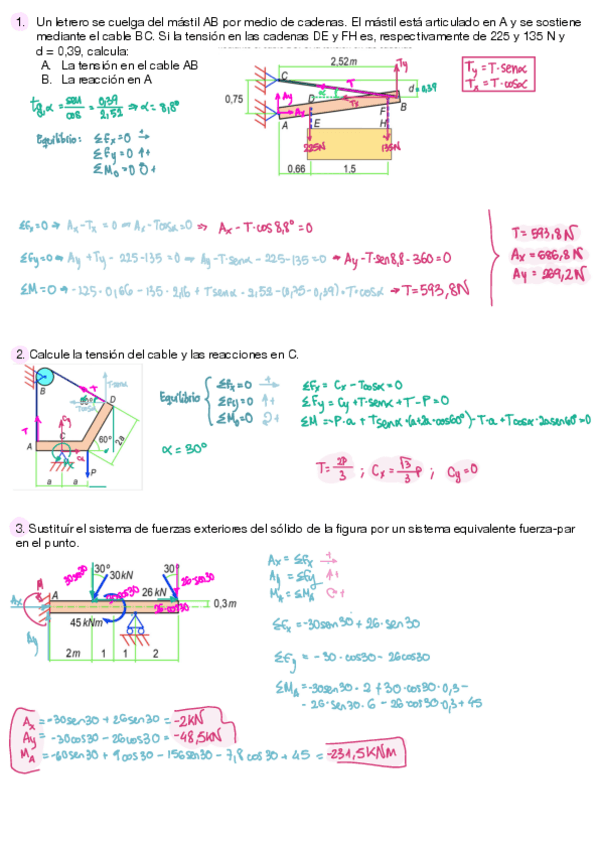 1. Un letrero se cuelga del mástil AB por medio de cadenas. El mástil está articulado en A y se sostiene
mediante el cable BC. Si la tensión en las cadenas DE y FH es, respectivamente de 225 y 135 N y
d = 0,39, calcula:
A. La tensión en el cable AB
B. La reacción en A
tg α = sen/cos = 0,39/2,52 ⇒ α = 8,8°
Equilibrio: ΣFx=0
ΣFy=0
ΣM₀=0
2,52m
Ty
C
T
d=0,39
0,75
Ay
D
α
Tx
F
B
A
Ax
E
H
225N
135N
0,66
1,5
Ty = T·senα
Tx = T·cosα
ΣFx=0 → Ax-Tx = 0 → Ax-Tcosα=0 ⇒ Ax - T·cos 8,8° = 0
ΣFy=0 → Ay + Ty - 225-135 = 0 → Ay-T·senα - 225-135=0 → Ay-T·sen8,8 - 360 = 0
ΣM=0 → -225·0,66 - 135·2,16 + Tsenα·2,52-(0,75-0,39)·T·cosα → T=593,8N
T= 593,8N
Ax = 686,8N
Ay = 269,2N
2. Calcule la tensión del cable y las reacciones en C.
B
T
D
Tcosα
Cy
C
60°
2a
A
P
a
a
Equilibrio
ΣFx=0
ΣFy=0
ΣM₀=0
α = 30°
ΣFx = Cx - Tcosα=0
ΣFy = Cy+T·senα+T-P=0
ΣM = -P·a + Tsenα·(a+2a·cos60°)-T·a+Tcosα·2asen60=0
T= 2P/3 ; Cx = √3/3 P ; Cy=0
3. Sustituír el sistema de fuerzas exteriores del sólido de la figura por un sistema equivalente fuerza-par
en el punto.
30°
30kN
30°
30sen30
26·sen30
26 kN
26·cos30
A
Ax
Ay
0,3m
45 kNm
2m
1
1
2
Ax = ΣFx
Ay = ΣFy
MA = ΣMA
ΣFx = -30sen30 + 26·sen30
ΣFy = -30·cos30 - 26cos30
ΣMA = -30sen30·2 + 30·cos30·0,3-
- 26·sen30·6 - 26cos30·0,3 + 45
Ax = -30sen30 + 26sen30 = -2KN
Ay = -30cos30 - 26cos30 = -48,5KN
MA = -60sen30 + 9cos30 - 156sen30 - 7,8cos30 + 45 = -231,5KNm